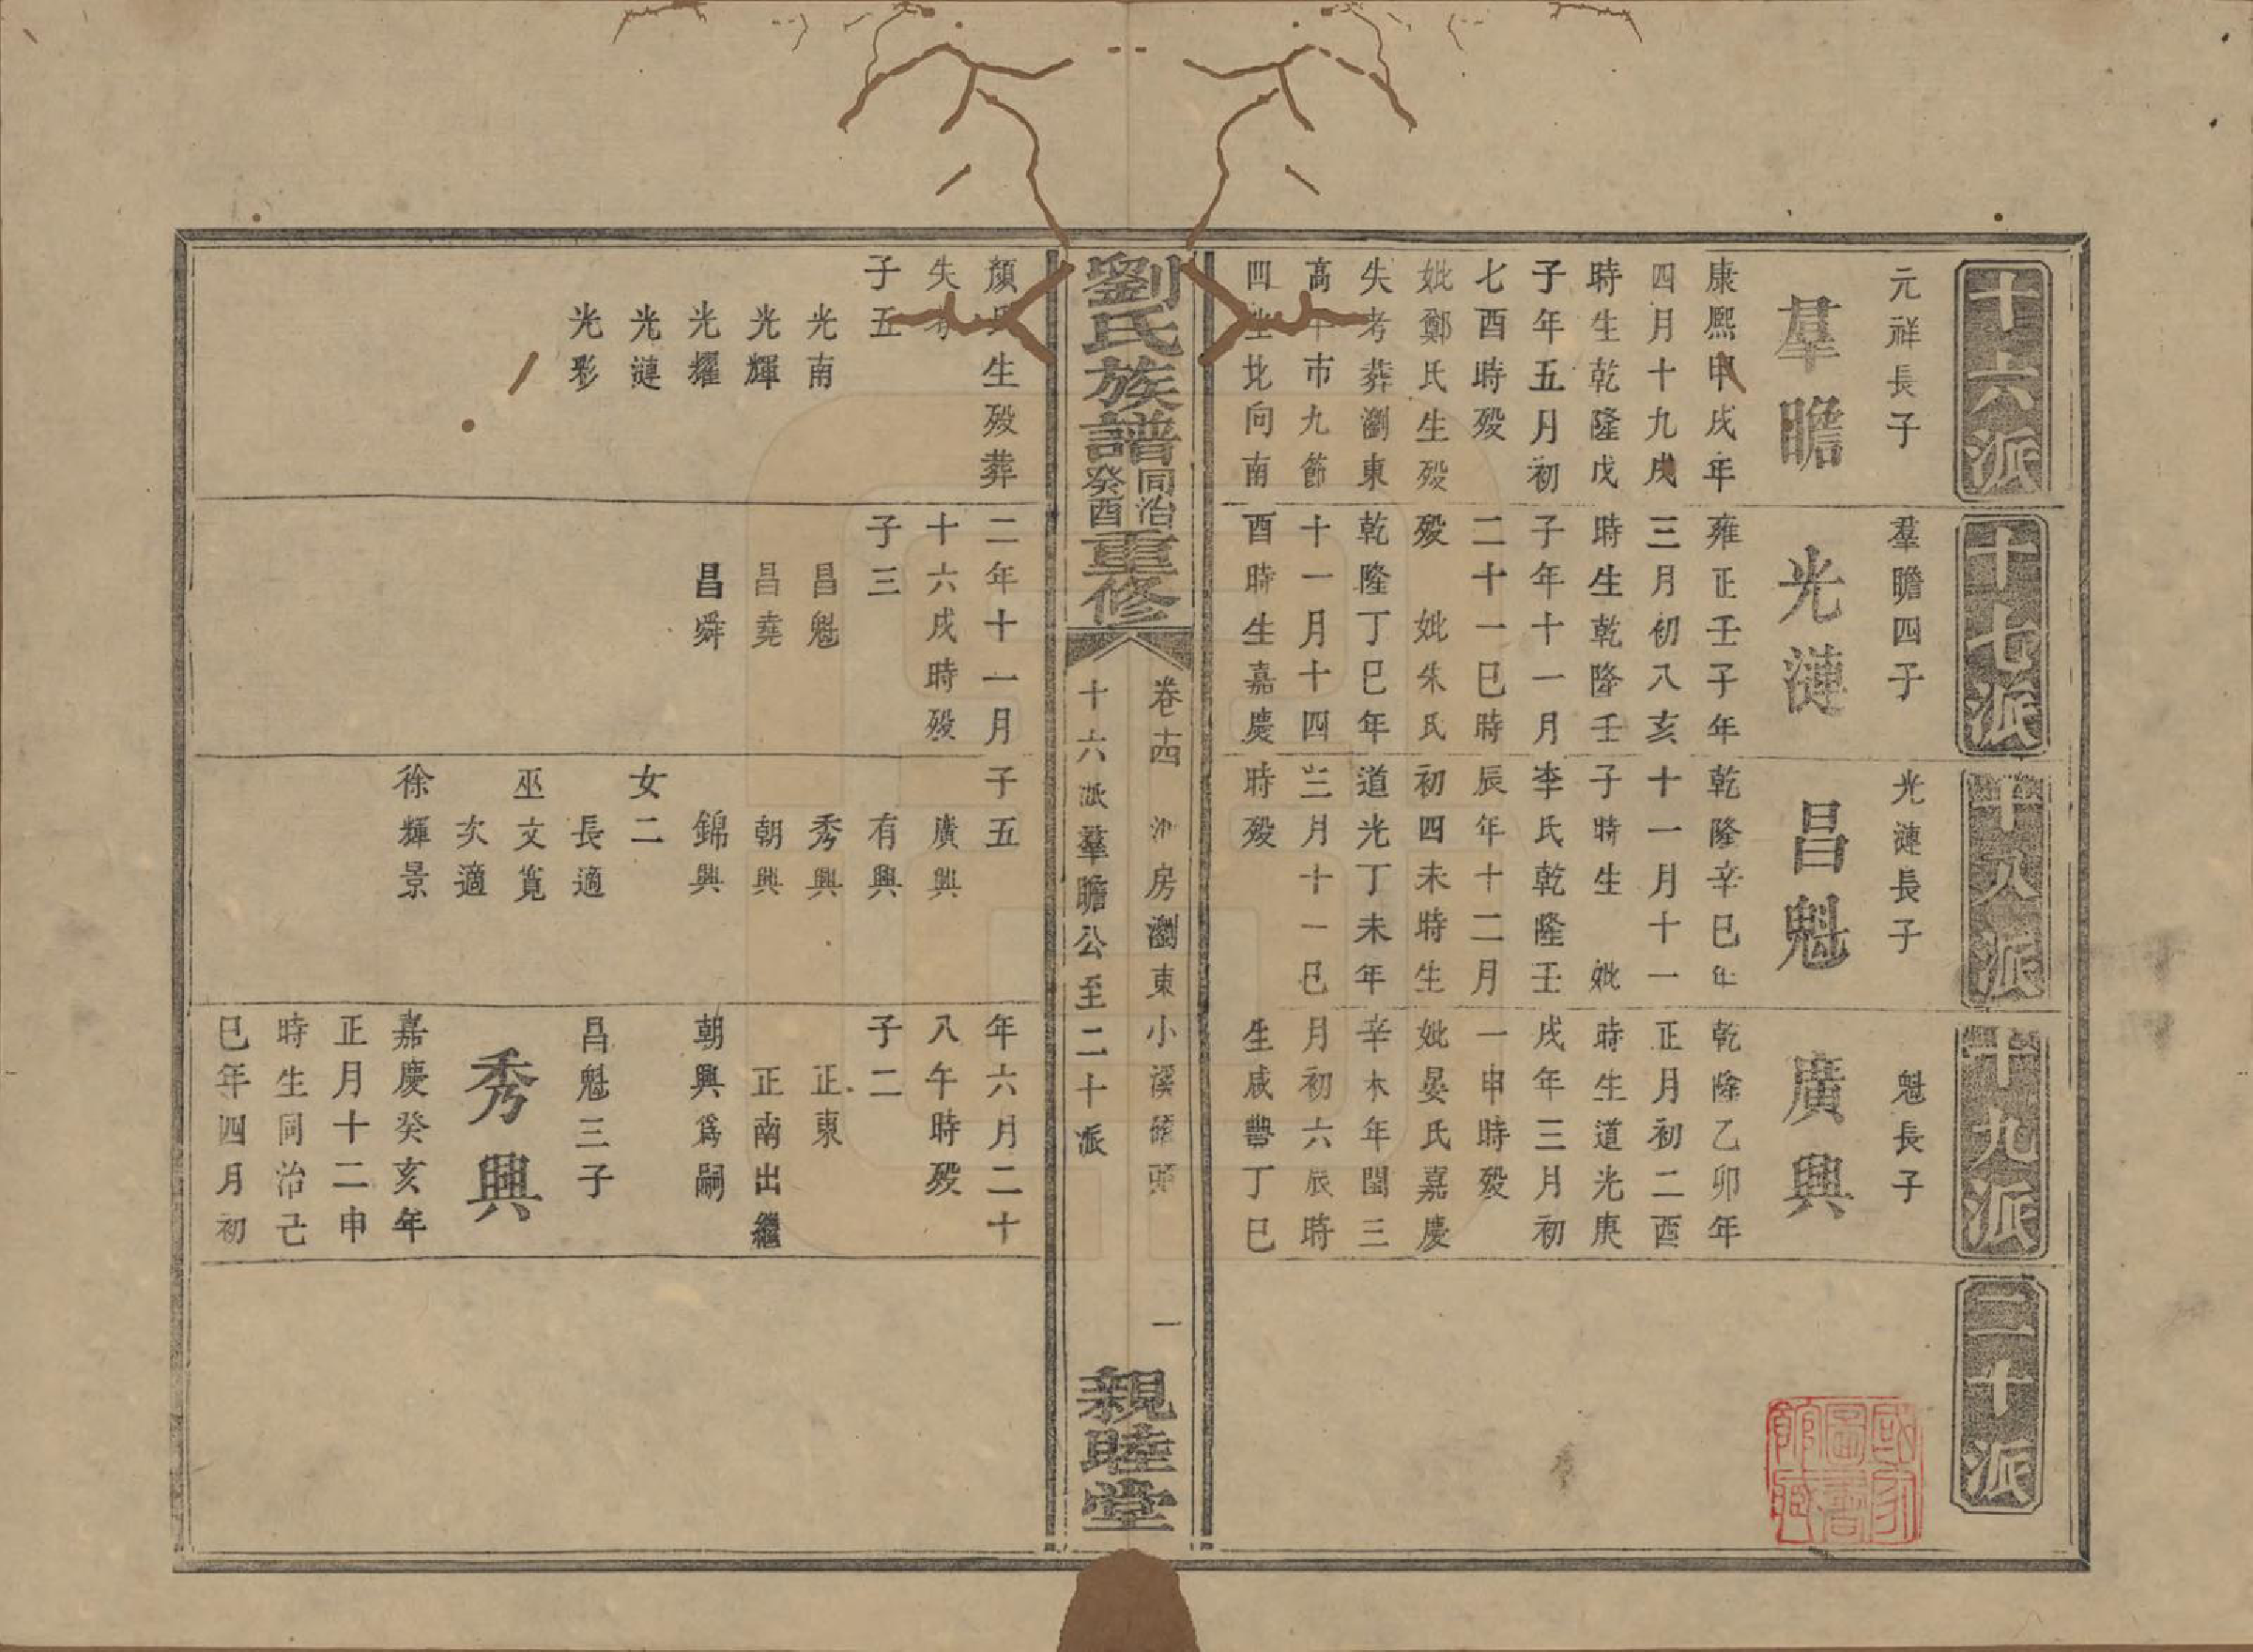 十六派
元祥長子
羣瞻
康熙甲戌年
四月十九戌
時生乾隆戊
子年五月初
七酉時歿
妣鄭氏生歿
失考葬瀏東
高 市九節
四 北向南
顏 生歿葬
失
子五
光南
光輝
光耀
光漣
光彩
十七派
羣瞻四子
光漣
雍正壬子年
三月初八亥
時生乾隆壬
子年十一月
二十一巳時
歿 妣朱氏
乾隆丁巳年
十一月十四
酉時生嘉慶
二年十一月
十六戌時歿
子三
昌魁
昌堯
昌舜
十八派
光漣長子
昌魁
乾隆辛巳年
十一月十一
子時生 妣
李氏乾隆壬
辰年十二月
初四未時生
道光丁未年
三月十一巳
時歿
子五
廣興
有興
秀興
朝興
錦興
女二
長適
巫文寬
次適
徐輝景
十九派
魁長子
廣興
乾隆乙卯年
正月初二酉
時生道光庚
戌年三月初
一申時歿
妣晏氏嘉慶
辛未年閏三
月初六辰時
生咸豐丁巳
年六月二十
八午時歿
子二
正東
正南出繼
朝興爲嗣
昌魁三子
秀興
嘉慶癸亥年
正月十二申
時生同治己
巳年四月初
二十派
劉氏族譜
同治
癸酉
重修
卷十四 沖房瀏東小溪 頭 一
十六派羣瞻公至二十派
親睦堂
國家
圖書
館藏